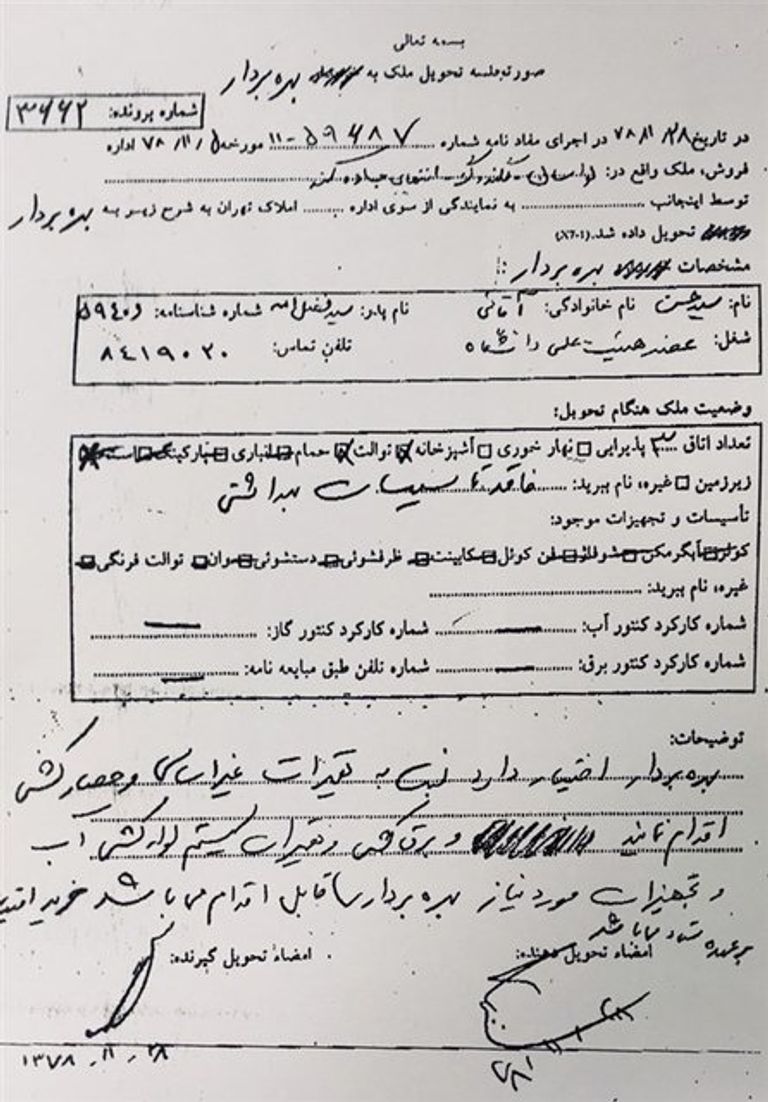 بسمه تعالی
صورتجلسه تحویل ملک به بهره بردار
شماره پرونده: ۳۶۶۲
در تاریخ ۷۸/۱۱/۲۸ در اجرای مفاد نامه شماره ۵۹۴۸۷-۱۱ مورخه ۷۸/۱۱/۵ اداره
فروش، ملک واقع در: لواسان - گلندوئک - انتهای جاده کند
توسط اینجانب .......... به نمایندگی از سوی اداره ...... املاک تهران به شرح زیر به بهره بردار
تحویل داده شد. (X7-1)
مشخصات بهره بردار:
نام: سید حسن نام خانوادگی: آقائی نام پدر: سید فضل اله شماره شناسنامه: ۵۹۴۰۶
شغل: عضو هیئت علمی دانشگاه تلفن تماس: ۸۴۱۹۰۲۰
وضعیت ملک هنگام تحویل:
تعداد اتاق ۳ پذیرایی نهار خوری آشپزخانه توالت حمام انباری پارکینگ
زیرزمین غیره، نام ببرید: فاقد تاسیسات بهداشتی
تأسیسات و تجهیزات موجود:
کولر آبگرمکن شوفاژ فن کوئل کابینت ظرفشوئی دستشوئی وان توالت فرنگی
غیره، نام ببرید:
شماره کارکرد کنتور آب: شماره کارکرد کنتور گاز:
شماره کارکرد کنتور برق: شماره تلفن طبق مبایعه نامه:
توضیحات:
بهره بردار اختیار دارد نسبت به تغییرات غیر اساسی و حصار کشی
اقدام نماید و برق کشی و تغییرات سیستم لوله کشی آب
و تجهیزات مورد نیاز بهره بردار قابل اقدام می باشد خرید
بر عهده ستاد می باشد
امضاء تحویل دهنده: امضاء تحویل گیرنده:
۱۳۷۸/۱۱/۲۸